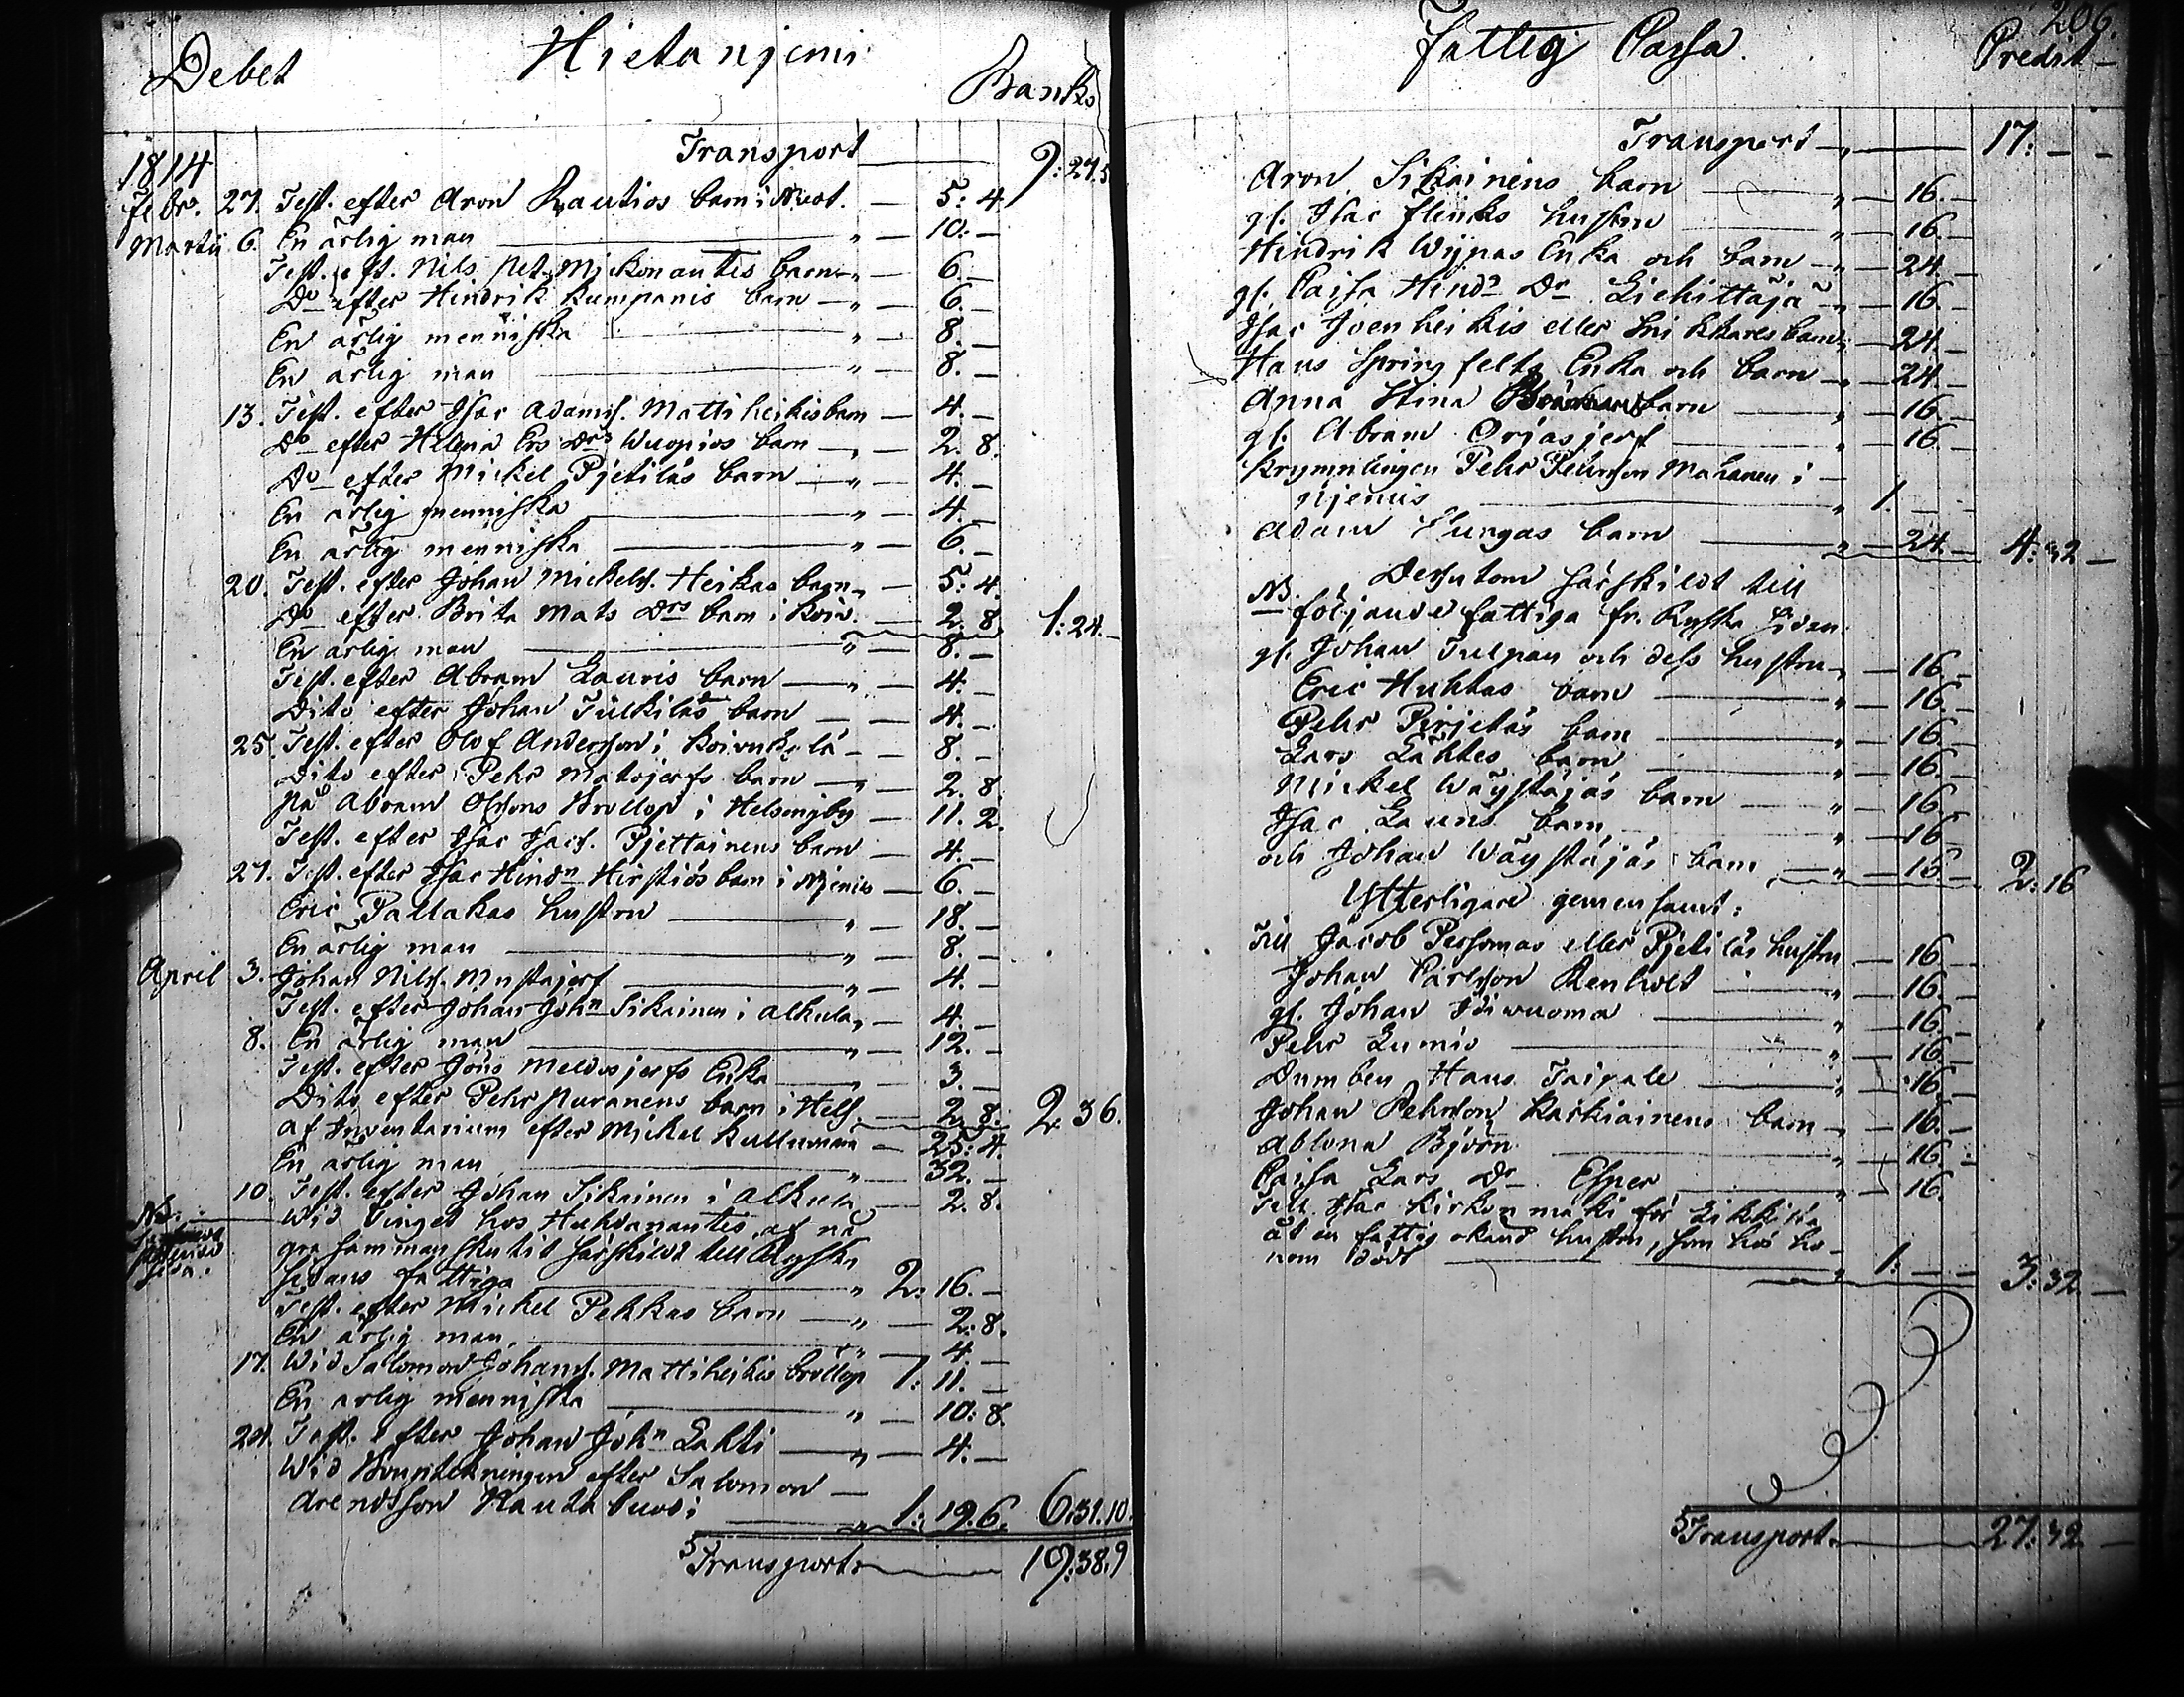 Debet Hietanjemi Banko
1814 Transport 9:27.5
Febr. 27. Test. efter Aron Rautios barn i Niwot. — 5:4.
Martii 6. En ärlig man — 10.—
Test. eft. Nils Pet. Mickonantis barn — 6.—
Do efter Hindrik Kumpanis barn — 6.—
En ärlig menniska — 8.—
En ärlig man — 8.—
13. Test. efter Isac Adams. Mattiheikis barn — 4.—
Do efter Helena Ers Drs Wuopios barn — 2.8.
Do efter Mickel Pjetiläs barn — 4.—
En ärlig menniska — 4.—
En ärlig menniska — 6.—
20. Test. efter Johan Mickels. Heikas barn — 5:4.
Do efter Brita Mats Drs barn i Koiv. — 2.8. 1:24.—
En ärlig man — 8.—
Test. efter Abram Lauris barn — 4.—
Dito efter Johan Tulkiläs barn — 4.—
25. Test. efter Olof Andersson i Koivukylä — 8.—
Dito efter Pehr Matojerfs barn — 2.8.
På Abram Olssons Brollop i Helsingby — 11.2.
Test. efter Isac Isacs. Pjettainens barn — 4.—
27. Test. efter Isac Hindn Hirstiös barn i Njemis — 6.—
Eric Pallakas hustru — 18.—
En ärlig man — 8.—
April 3. Johan Nils. Mustajerf — 4.—
Test. efter Johan John Sikainen i Alkula — 4.—
8. En ärlig man — 12.—
Test. efter Jöns Meldosjerfs Enka — 3.—
Dito efter Pehr Puranens barn i Hels. — 2.8. 2.36.
af Inventarium efter Mickel Kullumaa — 25:4.
En ärlig man — 32.—
10. Test. efter Johan Sikainen i Alkula — 2.8.
NB. Wid Tinget hos Huhdanantis, af nå
gra sammanskutit särskildt till Ryska
sidans fattiga — 2:16.—
Test. efter Mickel Pekkas barn — 2:8.
En ärlig man — 4.—
17. Wid Salomon Johans. Mattiheikis brollop 1:11.—
En ärlig menniska — 10:8.
24. Test. efter Johan John Lahti — 4.—
Wid efter Salomon —
Arendsson — 1:19.6. 6:31.10.
Transport 19:38.9
206.
Fattig Cassa. Credit —
Transport — 17:—
Aron Sikainens barn — 16.—
gl. Isac Flinks hustru — 16.—
Hindrik Wijnas Enka och barn — 24.—
gl. Caisa Hinds Dr Liehittäjä — 16.—
Isac Juenheikis eller Snikkares barn — 24.—
Hans Springfelts Enka och barn — 24.—
Anna Stina barn — 16.—
gl. Abram Orjasjerf — 16.—
Krymplingen Pehr Pehrsson Mahanen i —
Njemis — 1.—
Adam Kungas barn — 24.— 4:32 —
NB. Dessutom särskildt till
följande fattiga fr. Ryska Sidan
gl. Johan Tulpan och dess hustru — 16.—
Eric Huhtas barn — 16.—
Pehr Pirjetäs barn — 16.—
Lars Lahtes barn — 16.—
Mickel Wäystäjäs barn — 16.—
Isac Lauris barn — 16.—
och Johan Wäystäjäs barn — 16.— 2:16
Ytterligare gemensamt:
Till Jacob Personas eller Pjetiläs hustru — 16.—
Johan Carlsson Renholt — 16.—
gl. Johan — 16.—
Pehr Lumio — 16.—
Dumben Hans Taipale — 16.—
Johan Pehrsson Karkiainens barn — 16.—
Ablona Björn — 16.—
Caisa Lars Dr Esper — 16.
Till Isac Kirkonmäki för Likkista
åt en fattig okänd hustru, som hos ho-
nom dödt — 1:— 3:32.—
Transport. 27:32.—